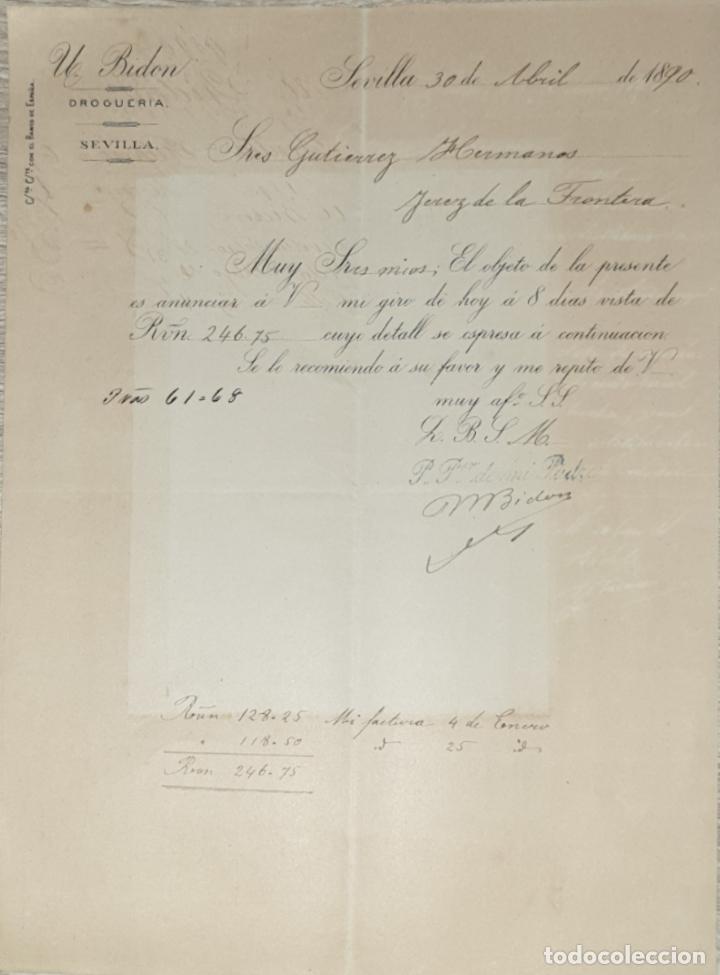 U. Bidon
DROGUERIA.
SEVILLA.
C/ta C/te CON EL BANCO DE ESPAÑA.
Sevilla 30 de Abril de 1890.
Sres Gutierrez Hermanos
Jerez de la Frontera.
Muy Sres mios; El objeto de la presente
es anunciar á V mi giro de hoy á 8 dias vista de
Rvn. 246.75 cuyo detall se espresa á continuacion.
Se lo recomiendo á su favor y me repito de V
muy af.o S.S.
61=68
Q. B. S. M.
P. P.er de mi Padre
Bidon
Rvn 128=25 Mi factura 4 de Enero
" 118=50 id 25 id
Rvon 246=75
todocoleccion